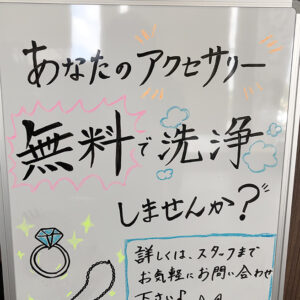 あなたのアクセサリー
無料で洗浄
しませんか?
詳しくは、スタッフまで
お気軽にお問い合わせ
下さい♪